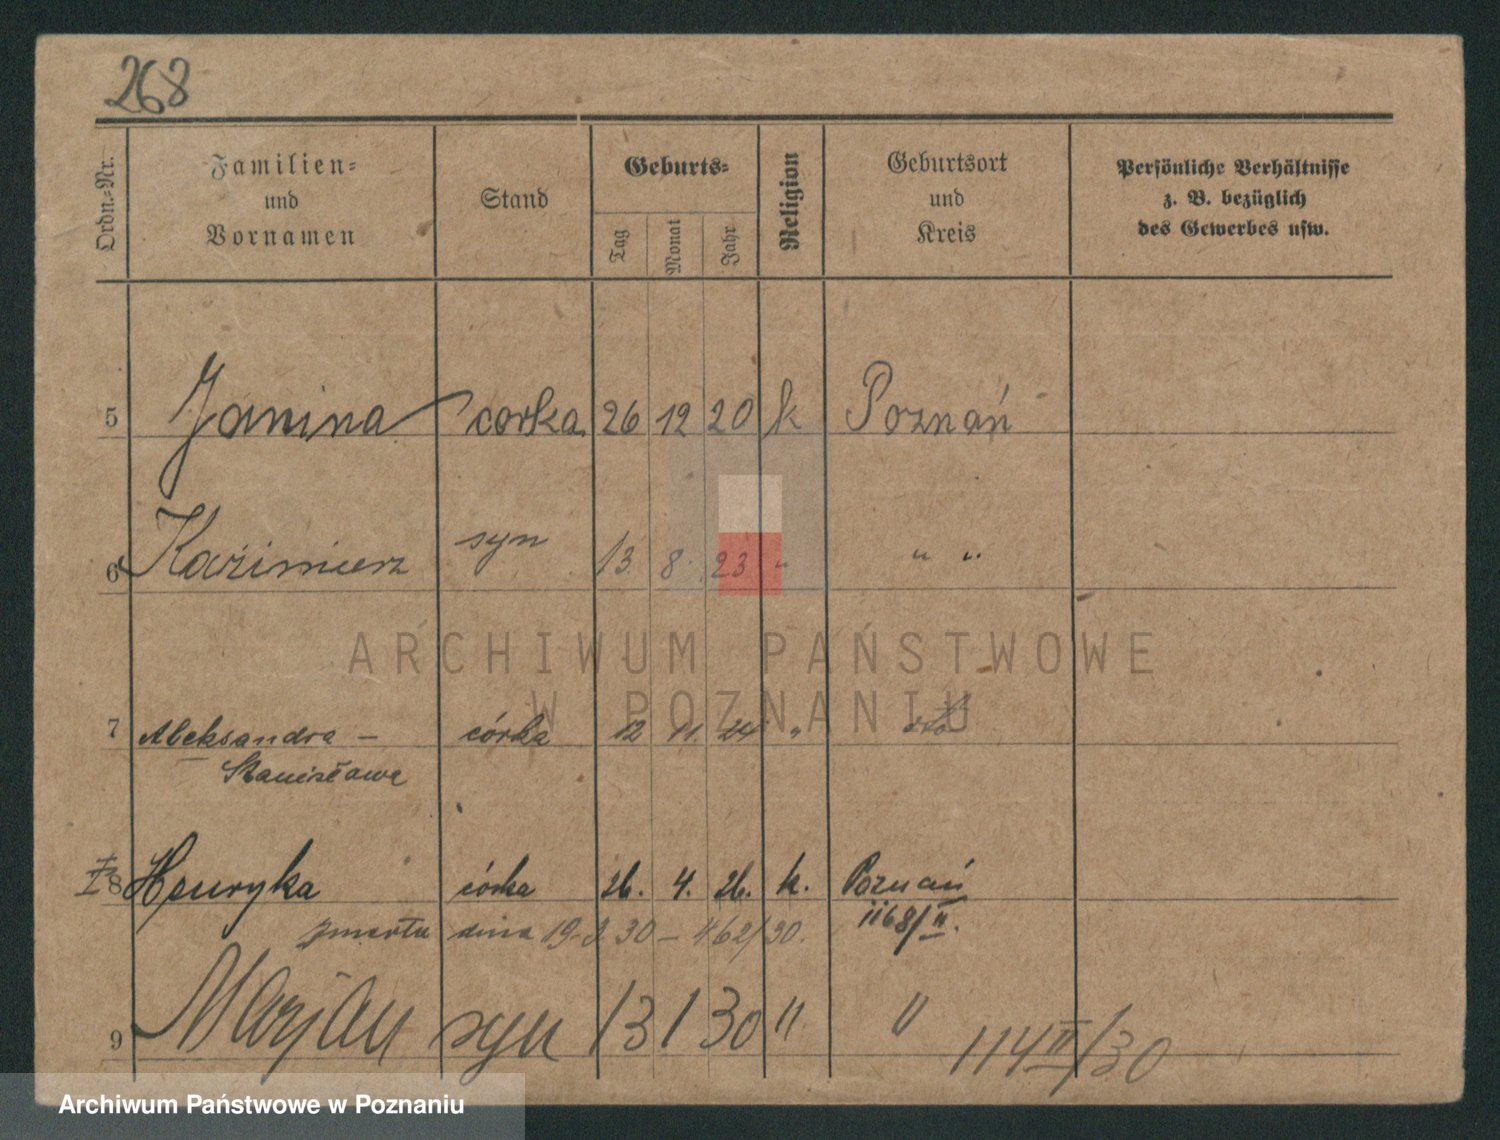 268
Ordn.-Nr.
Familien- und Vornamen
Stand
Geburts-
Tag Monat Jahr
Religion
Geburtsort und Kreis
Persönliche Verhältnisse
z. B. bezüglich
des Gewerbes usw.
5 Janina corka 26 12 20 k Poznań
6 Kazimierz syn 13 8. 23 " " "
ARCHIWUM PAŃSTWOWE
W POZNANIU
7 Aleksandra - córka 12 11. 24 "
Stanisława
8 Henryka córka 26. 4. 26. k. Poznań
zmarła dnia 19. 30 - 462/30. 1168/II.
9 Marjan syn 13 1 30 " "
114 II/30
Archiwum Państwowe w Poznaniu